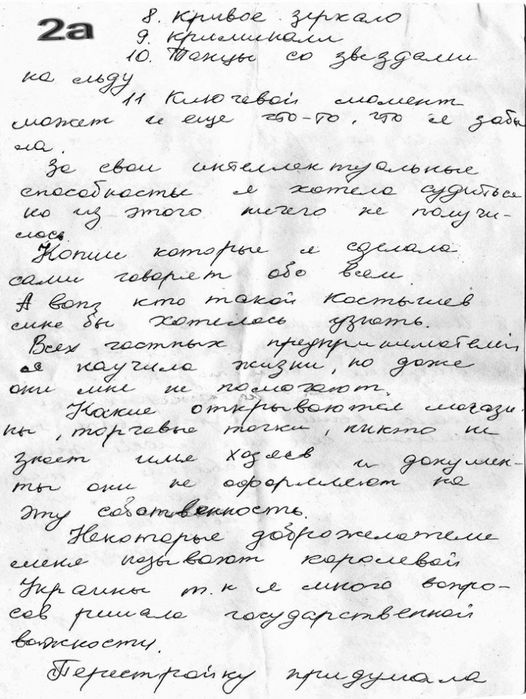 2а
8. Кривое зеркало
9. криминали
10. Танцы со звездами
на льду
11 Ключевой момент
может и еще что-то, что я забы
ла.
За свои интеллектуальные
способности я хотела судиться
но из этого ничего не получи-
лось.
Копии которые я сделала
сами говорят обо всем.
А вопз кто такой Костышев
мне бы хотелось узнать.
Всех частных предпринимателей
я научила жизни, но даже
они мне не помогают.
Какие открываются магази-
ны, торговые точки, никто не
знает имя хозяев и докумен-
ты они не оформляют на
эту собственность.
Некоторые доброжелатели
меня называют королевой
Украины т.к я много вопро-
сов решала государственной
важности.
Перестройку придумала